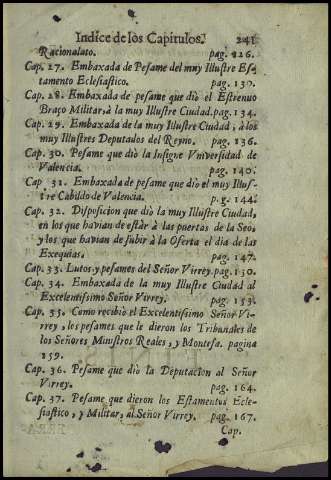 Indice de los Capitulos. 241
Racionalato. pag. 126.
Cap. 27. Embaxada de Pesame del muy Illustre Es-
tamento Eclesiastico. pag. 130.
Cap. 28. Embaxada de pesame que diò el Estrenuo
Braço Militar, à la muy Illustre Ciudad. pag. 134.
Cap. 29. Embaxada de la muy Illustre Ciudad, à los
muy Illustres Deputados del Reyno. pag. 136.
Cap. 30. Pesame que diò la Insigne Vniversidad de
Valencia. pag. 140.
Cap. 31. Embaxada de pesame que diò el muy Illus-
tre Cabildo de Valencia. p.g. 144.
Cap. 32. Disposicion que diò la muy Illustre Ciudad,
en los que havian de estàr à las puertas de la Seo,
y los que havian de subir à la Oferta el dia de las
Exequias. pag. 147.
Cap. 33. Lutos, y pesames del Señor Virrey. pag. 150.
Cap. 34. Embaxada de la muy Illustre Ciudad al
Excelentissimo Señor Virrey. pag. 153.
Cap. 35. Como recibiò el Excelentissimo Señor Vi-
rrey, los pesames que le dieron los Tribunales de
los Señores Ministros Reales, y Montesa. pagina
159.
Cap. 36. Pesame que diò la Deputacion al Señor
Virrey. pag. 164.
Cap. 37. Pesame que dieron los Estamentos Ecle-
siastico, y Militar, al Señor Virrey. pag. 167.
Cap.